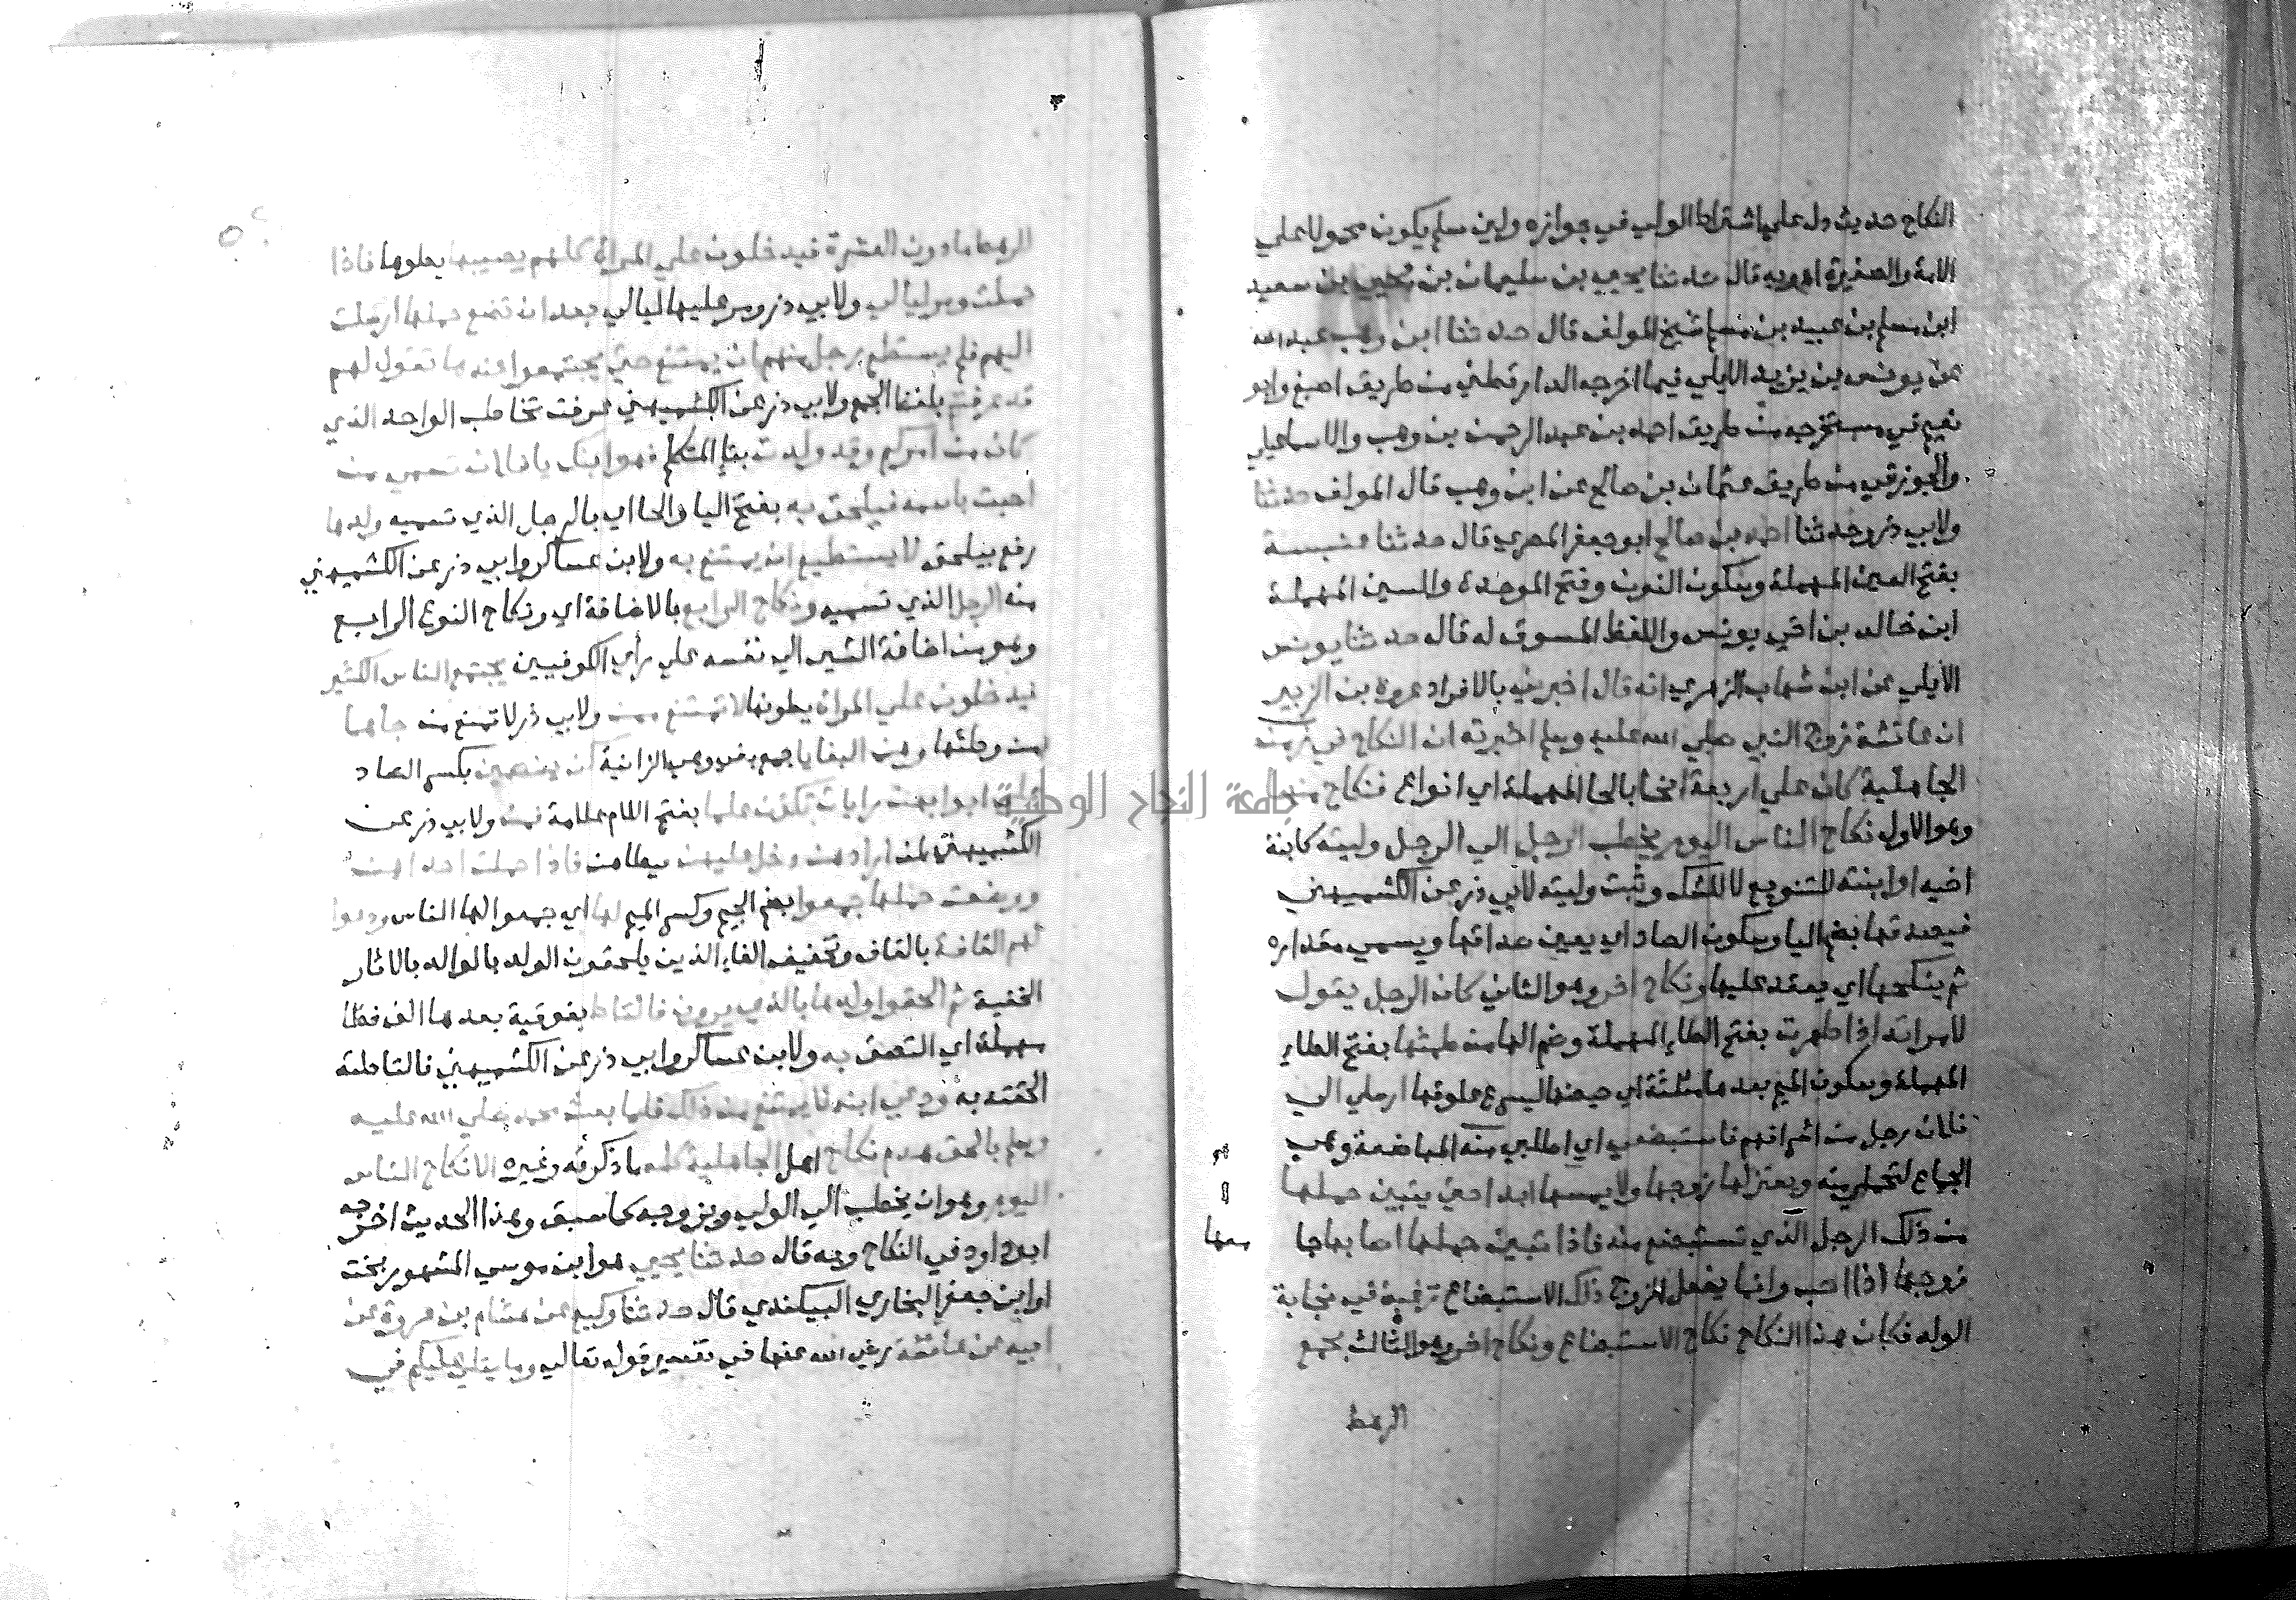 النكاح حديث دل علي اشتراط الولي في جوازه ولين سلم يكون محمولا علي
الامة والصغيرة اه وبه قال حدثنا يحيي بن سليمان بن يحيي بن سعيد
ابن مسلم بن عبيد بن مسلم شيخ المولف قال حدثنا ابن وهب عبد الله
عن يونس بن يزيد الايلي فيما اخرجه الدارقطني من طريق اصبغ وابو
نعيم في مستخرجه من طريق احمد بن عبد الرحمن بن وهب والاسماعيلي
والجوزقي من طريق عثمان بن صالح عن ابن وهب قال المولف حدثنا
ولابي ذر وحدثنا احمد بن صالح ابو جعفر المصري قال حدثنا عنبسة
بفتح العين المهملة وسكون النون وفتح الموحدة والسين المهملة
ابن خالد بن اخي يونس واللفظ المسوق له قال حدثنا يونس
الأيلي عن ابن شهاب الزهري انه قال اخبرني بالافراد عروة بن الزبير
ان عائشة زوج النبي صلي الله عليه وسلم اخبرته ان النكاح في زمن
الجاهلية كان علي اربعة انحا بالحا المهملة اي انواع فنكاح منها
وهو الاول نكاح الناس اليوم يخطب الرجل الي الرجل وليته كابنة
اخيه او ابنته للتنويع لا للشك وثبت وليته لابي ذر عن الكشميهني
فيصدقها بضم اليا وسكون الصاد اي يعين صداقها ويسمي مقداره
ثم ينكحها اي يعقد عليها ونكاح اخر وهو الثاني كان الرجل يقول
لامراته اذا طهرت بفتح الطاء المهملة وضم الها من طمثها بفتح الطاء
المهملة وسكون الميم بعدها مثلثة اي حيضها ليسرع علوقها ارسلي الي
فلان رجل من اشرافهم فاستبضعي اي اطلبي منه المباضعة وهي
الجماع لتحملي منه ويعتزلها زوجها ولا يمسها ابدا حتي يتبين حملها
من ذلك الرجل الذي تستبضع منه فاذا تبين حملها اصابها جا
معها
زوجها اذا احب وانما يفعل الزوج ذلك الاستبضاع ترغبة في نجابة
الولد فكان هذا النكاح نكاح الاستبضاع ونكاح اخر وهو الثالث يجمع
الرهط
الرهط ما دون العشرة فيدخلون علي المراة كلهم يصيبها يطوها فاذا
حملت ووضر ليالي ولابي ذر ومر عليها ليالي بعد ان تضع حملها ارسلت
اليهم فلم يستطع رجل منهم ان يمتنع حتي يجتمعوا عندها تقول لهم
قد عرفتم بلفظ الجمع ولابي ذر عن الكشميهني عرفت تخاطب الواحد الذي
كان من امركم وقد ولدت بتا المتكلم فهو ابنك يا فلان تسمي من
احبت باسمه فيلحق به بفتح اليا والحا اي بالرجل الذي تسميه ولدها
رفع بيلحق لا يستطيع ان يمتنع به ولابن عساكر وابي ذر عن الكشميهني
منه الرجل الذي تسميه ونكاح الرابع بالاضافة اي ونكاح النوع الرابع
وهو من اضافة الشي الي نفسه علي رأي الكوفيين يجتمع الناس الكثير
فيدخلون علي المراة يطونها لا تمتنع ممن ولابي ذر لا تمنع من جاها
من وطئها وهن البغايا جمع بغي وهي الزانية كن ينصبن بكسر الصاد
علي ابوابهن رايات تكون علما بفتح اللام علامة فمن ولابي ذر عن
الكشميهني لمن ارادهن دخل عليهن يطاهن فاذا حملت احداهن
ووضعت حملها جمعوا بضم الجيم وكسر الميم لها اي جمعوا لها الناس ودعوا
لهم القافة بالقاف وتخفيف الفاء الذين يلحقون الولد بالوالد بالاثار
الخفية ثم الحقوا ولدها بالذي يرون فالتاط بفوقية بعدها الف فطا
مهملة اي التصق به ولابن عساكر وابي ذر عن الكشميهني فالتاطته
الحقته به ودعي ابنه لا يمتنع من ذلك فلما بعث محمد صلي الله عليه
وسلم بالحق هدم نكاح اهل الجاهلية كله ما ذكرته وغيره الا نكاح الناس
اليوم وهو ان يخطب الي الولي ويزوجه كما سبق وهذا الحديث اخرجه
ابو داود في النكاح وبه قال حدثنا يحيي هو ابن موسي المشهور بخت
او ابن جعفر البخاري البيكندي قال حدثنا وكيع عن هشام بن عروة عن
ابيه عن عائشة رضي الله عنها في تفسير قوله تعالي وما يتلي عليكم في
جامعة النجاح الوطنية